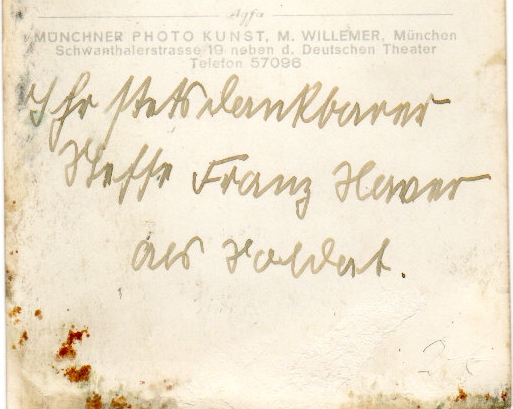 Agfa
MÜNCHNER PHOTO KUNST, M. WILLEMER, München
Schwanthalerstrasse 19 neben d. Deutschen Theater
Telefon 57096
Ihr stets dankbarer
Neffe Franz Xaver
als Soldat.